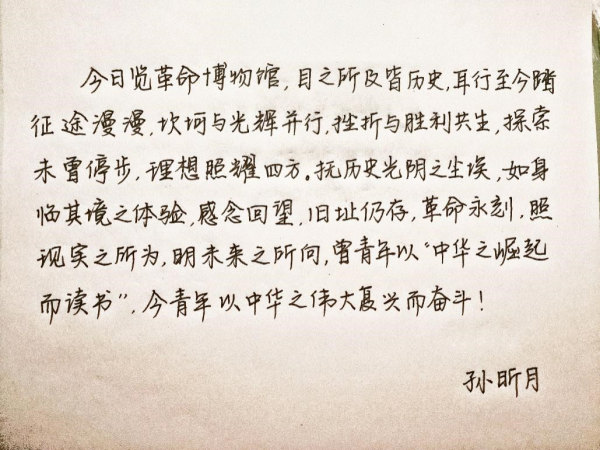 今日览革命博物馆，目之所及皆历史，耳行至今踏
征途漫漫，坎坷与光辉并行，挫折与胜利共生，探索
未曾停步，理想照耀四方。抚历史光阴之尘埃，如身
临其境之体验，感念回望，旧址仍存，革命永刻，照
现实之所为，明未来之所向，曾青年以“中华之崛起
而读书”，今青年以中华之伟大复兴而奋斗！
孙昕月